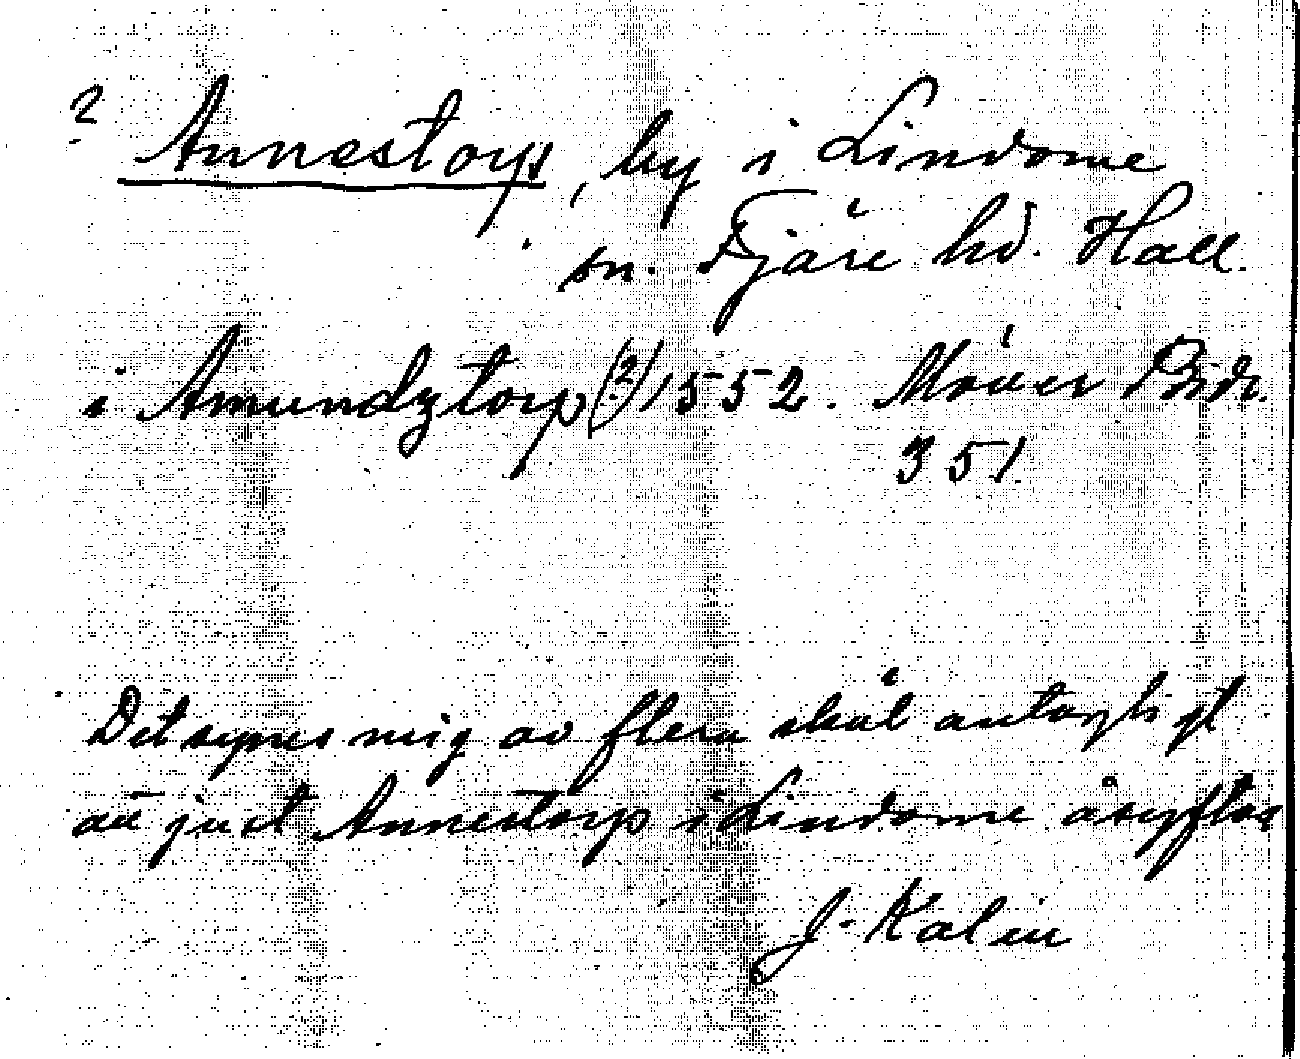 ? Annestorp, by i Lindome
sn. Fjäre hd. Hall.
i Amundztorp (?) 1552. Bidr.
351.
Det synes mig av flera skäl antagligt
att just Annestorp i Lindome åsyftas
J. Kalin